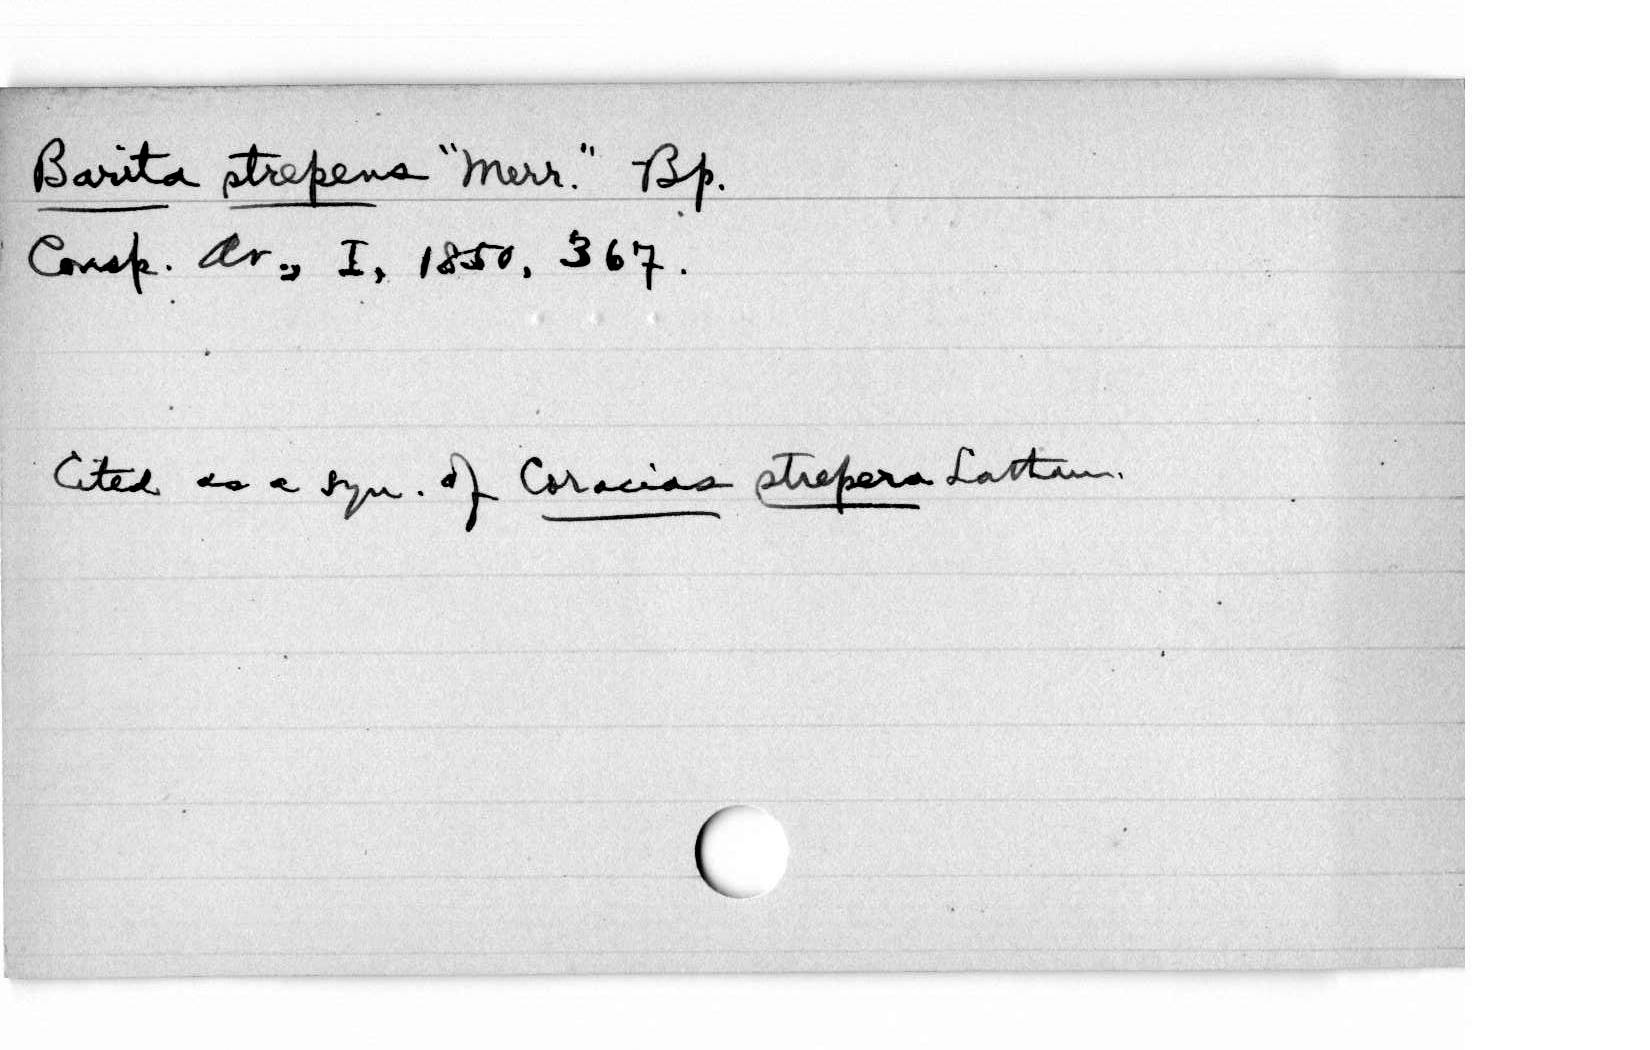 Barita strepens "Merr." Bp.
Consp. Av., I, 1850, 367.
Cited as a syn. of Coracias strepera Latham.